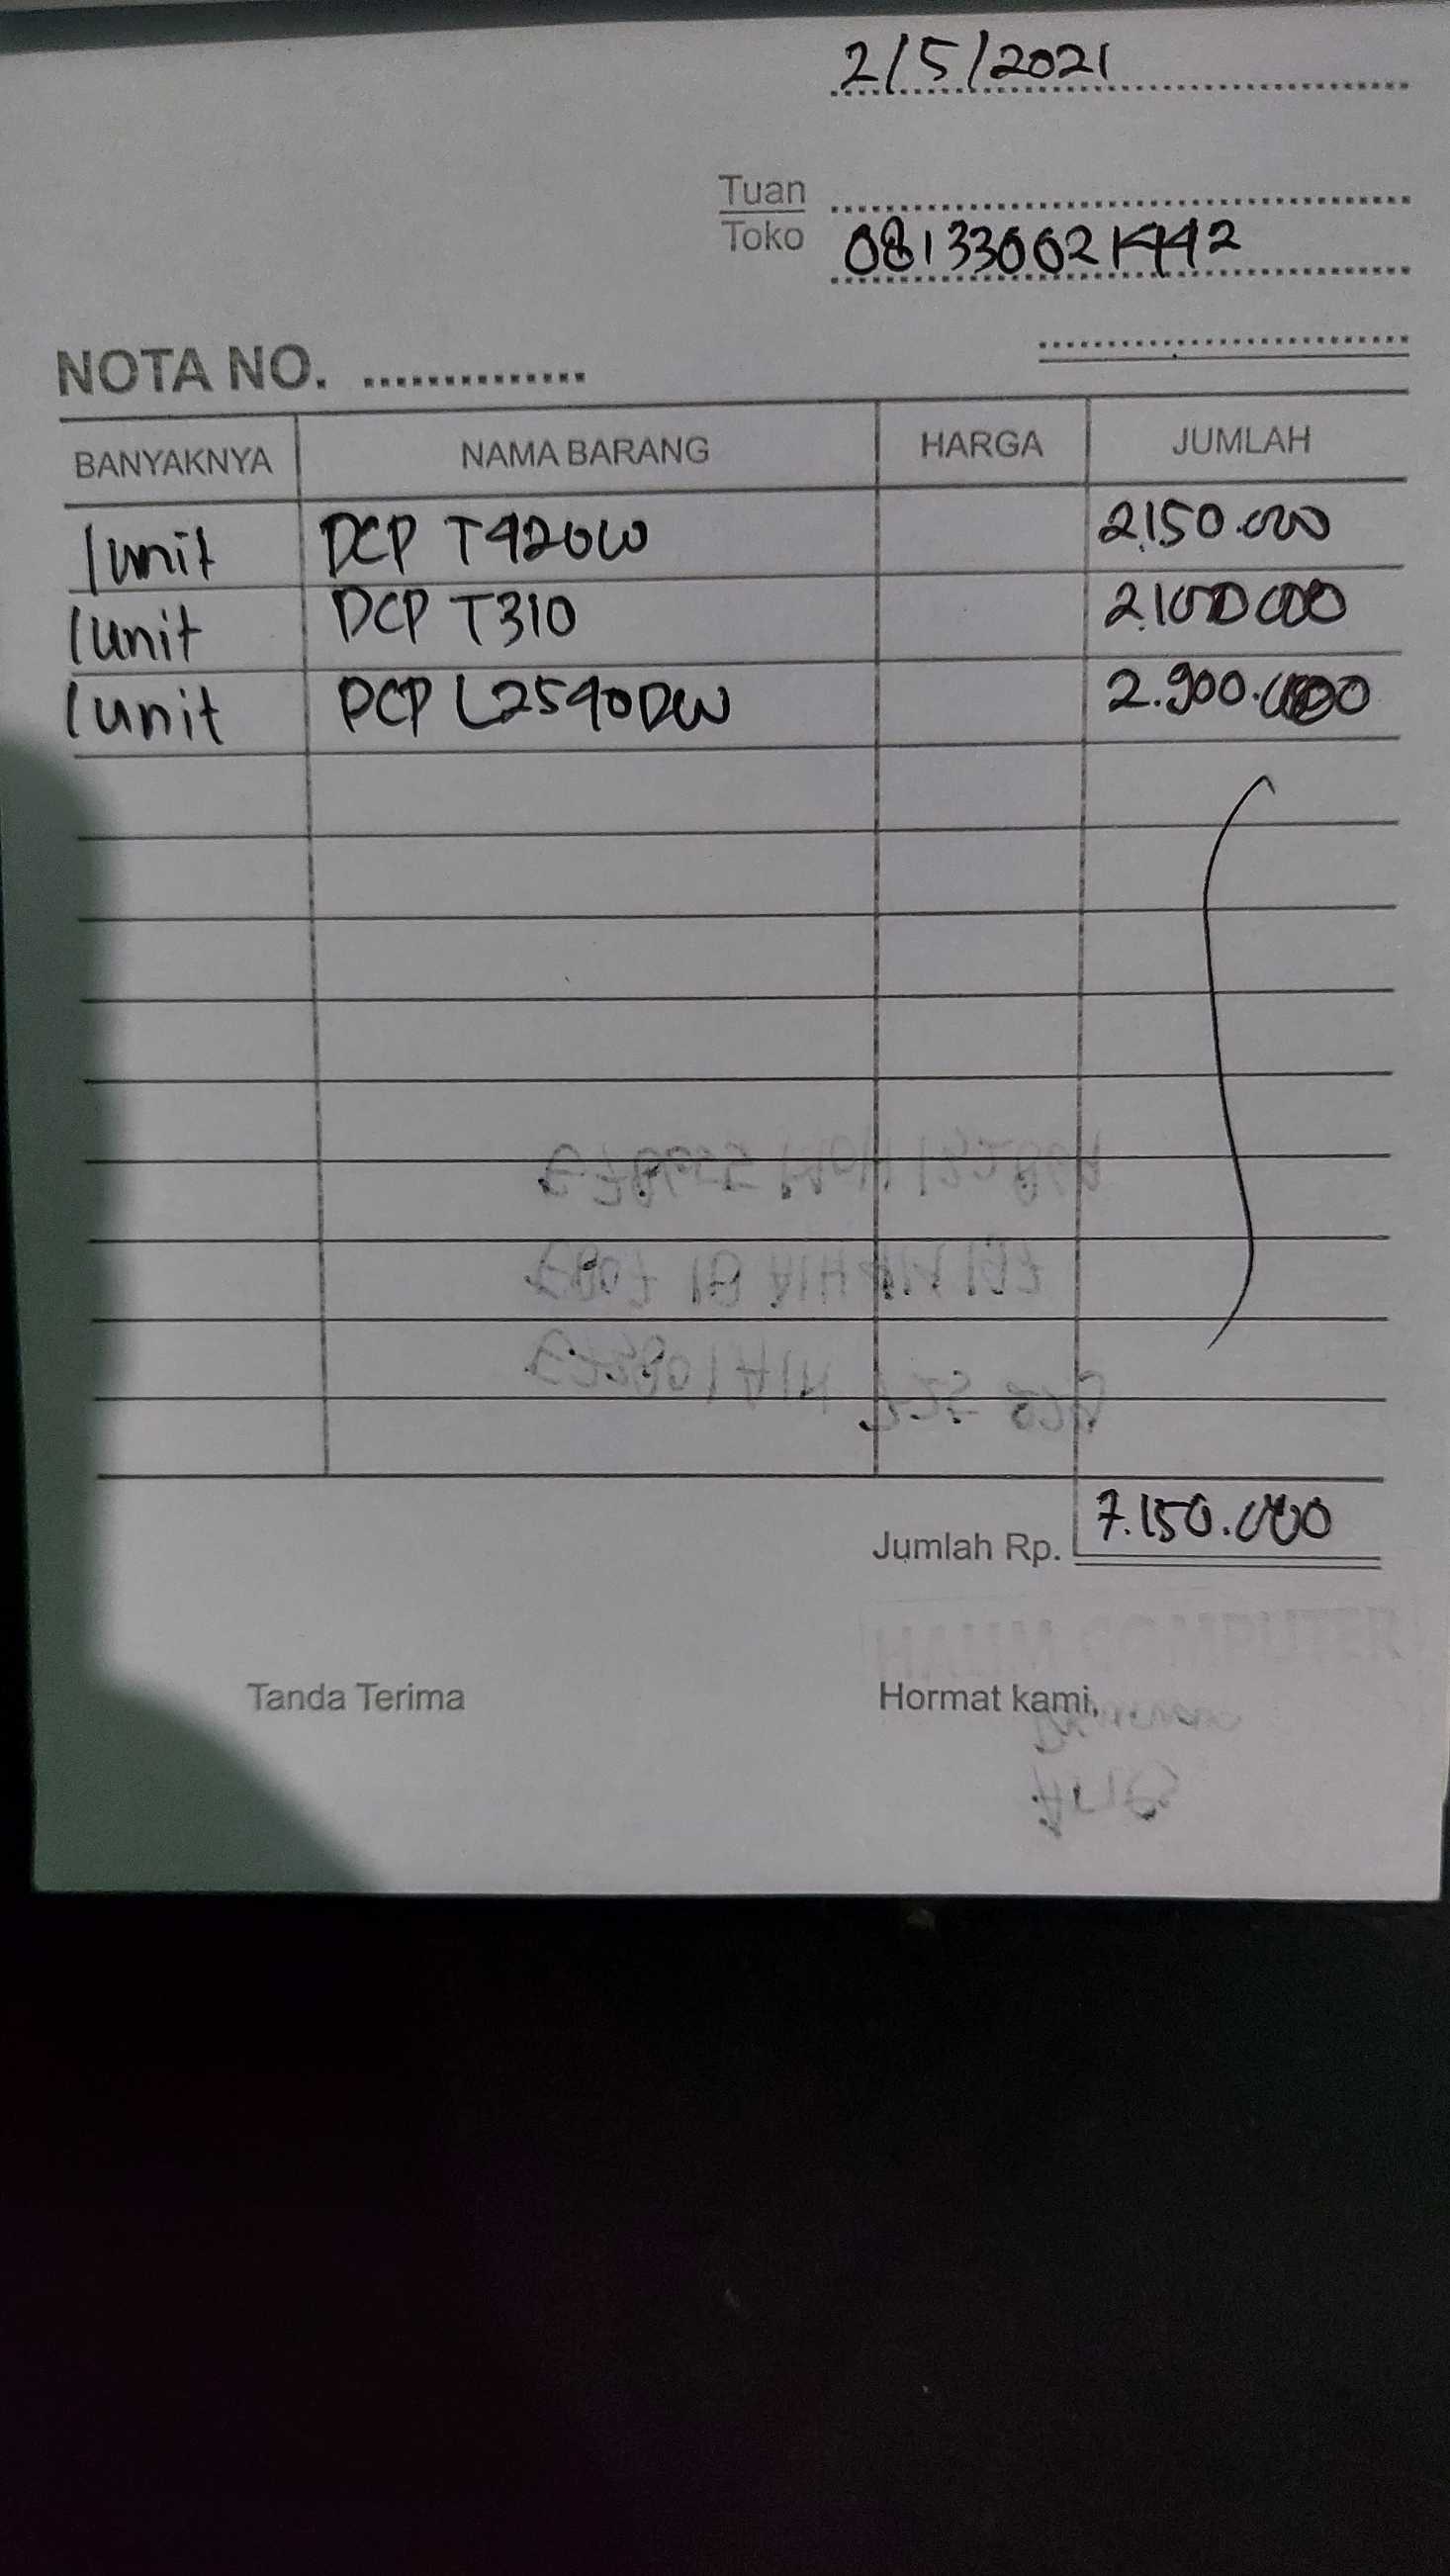 2/5/2021
Tuan
Toko 081330021442
NOTA NO. ..............
BANYAKNYA NAMA BARANG HARGA JUMLAH
1 unit DCP T420W 2.150.000
1 unit DCP T310 2.100.000
1 unit DCP L2540DW 2.900.000
Jumlah Rp. 7.150.000
HALIM COMPUTER
Tanda Terima Hormat kami,